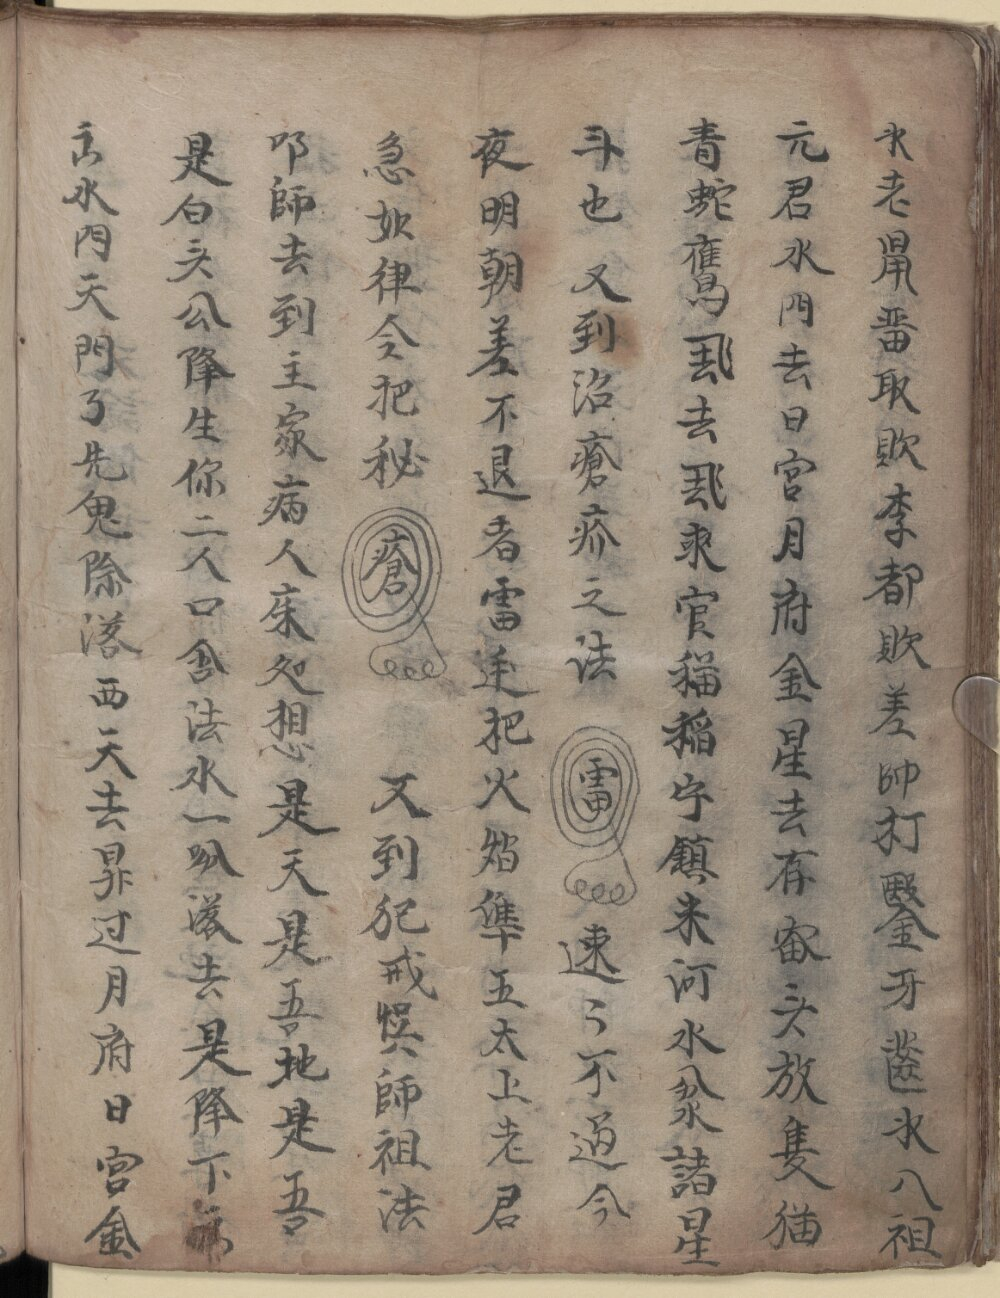 老鼠番取敗李都敗差帥打鑿牙齒氷八祖
元君水門去日宮月府金星去存宿头放隻猫
青蛇鳥去求官稲守鎮来河水諸星
斗也 又到治瘡疥之法 雷 速〻不過今
夜明朝差不退者雷迬把火焰準五太上老君
急如律令把秘 瘡 又到犯戒悞師祖法
叩師去到主家病人床処想是天是吾地是吾
是白头公降生你二人口含法水一噀落去是降下
水門天門了先鬼除落西天去昇过月府日宮金